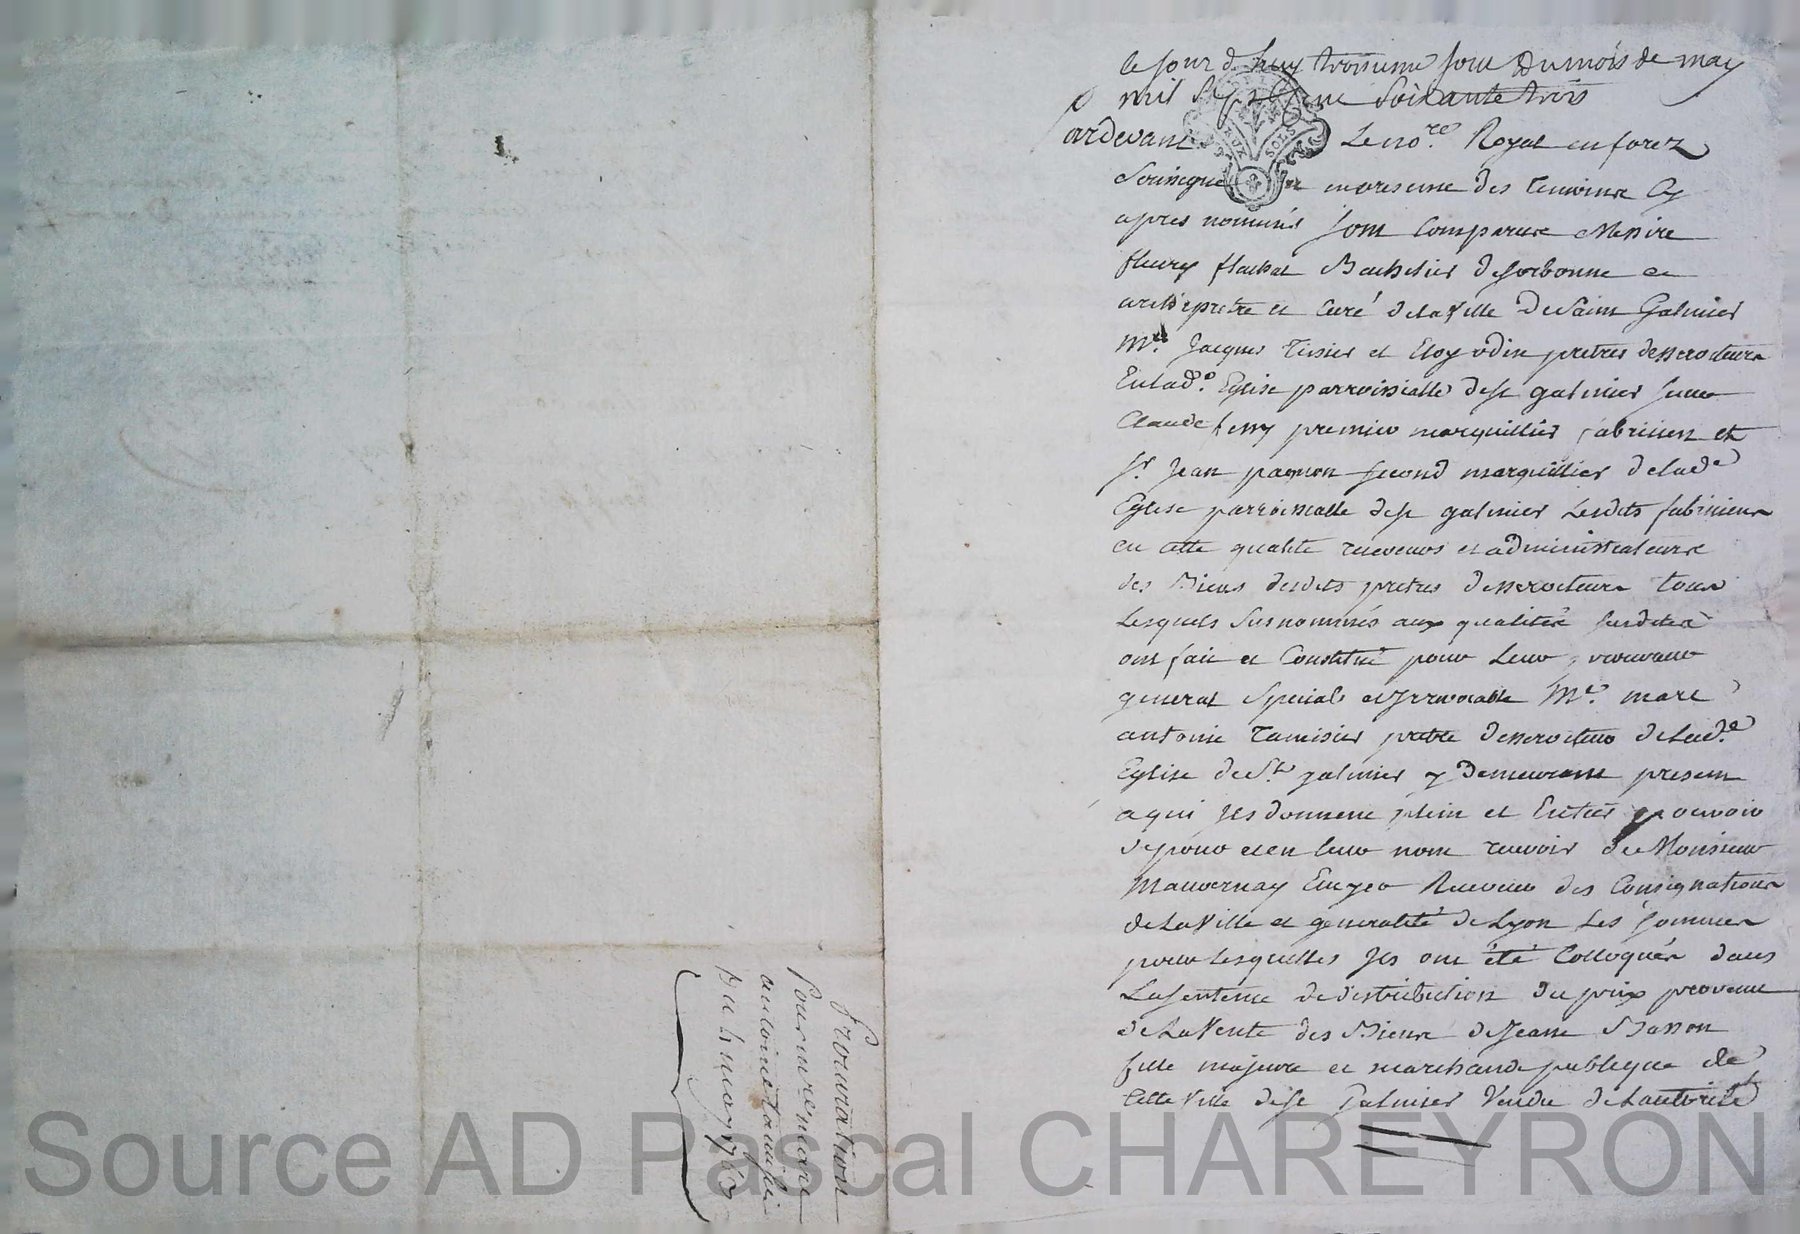 ce jour d huy troisieme jour du mois de may
mil sept cent soixante trois
pardevant Le no.re Royal en forez
Soussigné en presence des temoins cy
apres nommés sont comparus Messire
fleury flachat Bachelier de sorbonne et
archipretre et curé de la Ville De Saint Galmier
Mrs. Jacques Tissier et Eloy odin pretres desserviteurs
En lad.e Eglise parroissialle de st galmier sieur
Claude premier marguillier fabricien et
sr. Jean pagnon second marguillier de lad.e
Eglise parroissialle de st galmier Lesdits fabriciens
en cette qualité receveurs et administrateurs
des Biens desdits pretres desserviteurs tous
Lesquels susnommés aux qualités susdites
ont fait et Constitué pour Leur procureur
general special et Irrevocable Me. marc
antoine Tamisier pretre desserviteur de Lad.e
Eglise de St. galmier y demeurant present
a qui Ils donnent plein et Entier pouvoir
de pour et en leur nom recevoir de Monsieur
Mauvernay Ecuyer Receveur des Consignations
de La Ville et generalité de Lyon Les sommes
pour Lesquelles Ils ont été Colloqués dans
La sentence de distribution du prix provenu
de La Vente des Biens de Jeanne Basson
fille majeure et marchande publique de
Cette Ville de st Galmier Vendu de Lautorité
Procuration
Pour mre marc
antoine tamisier
Du 3 may 1763
SOLS
Source AD Pascal CHAREYRON